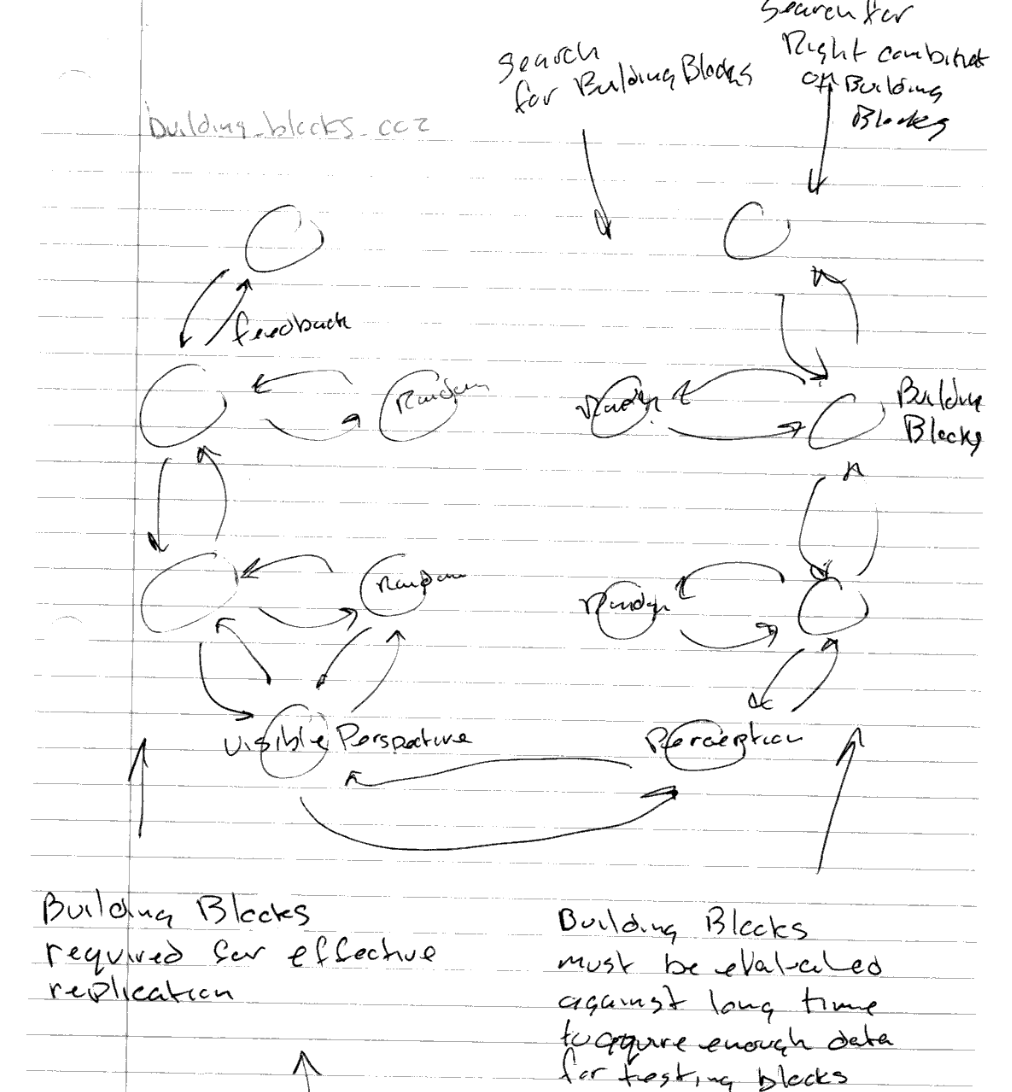 Search for
Right combinat
of Building
Blocks
Search
for Building Blocks
building_blocks_cc2
feedback
Random
Building
Blocks
Random
Visible Perspective
Perception
Building Blocks
required for effective
replication
Building Blocks
must be evaluated
against long time
to aquire enough data
for testing blocks